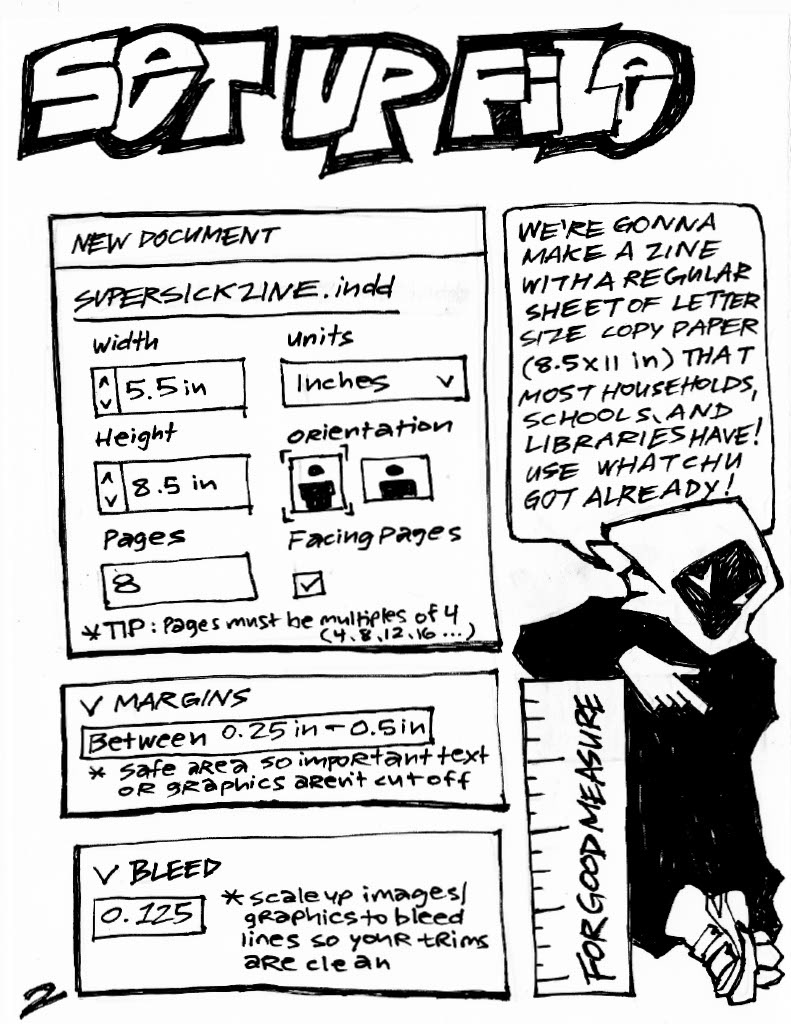 SET UP FILE
NEW DOCUMENT
SUPERSICKZINE.indd
Width
5.5 in
Units
Inches
Height
8.5 in
Orientation
Pages
8
Facing Pages
*TIP: Pages must be multiples of 4
(4, 8, 12, 16 ...)
WE'RE GONNA
MAKE A ZINE
WITH A REGULAR
SHEET OF LETTER
SIZE COPY PAPER
(8.5 x 11 in) THAT
MOST HOUSEHOLDS,
SCHOOLS, AND
LIBRARIES HAVE!
USE WHATCHU
GOT ALREADY!
MARGINS
Between 0.25 in - 0.5 in
* safe area so important text
or graphics aren't cut off
BLEED
0.125
*scale up images/
graphics to bleed
lines so your trims
are clean
FOR GOOD MEASURE
2